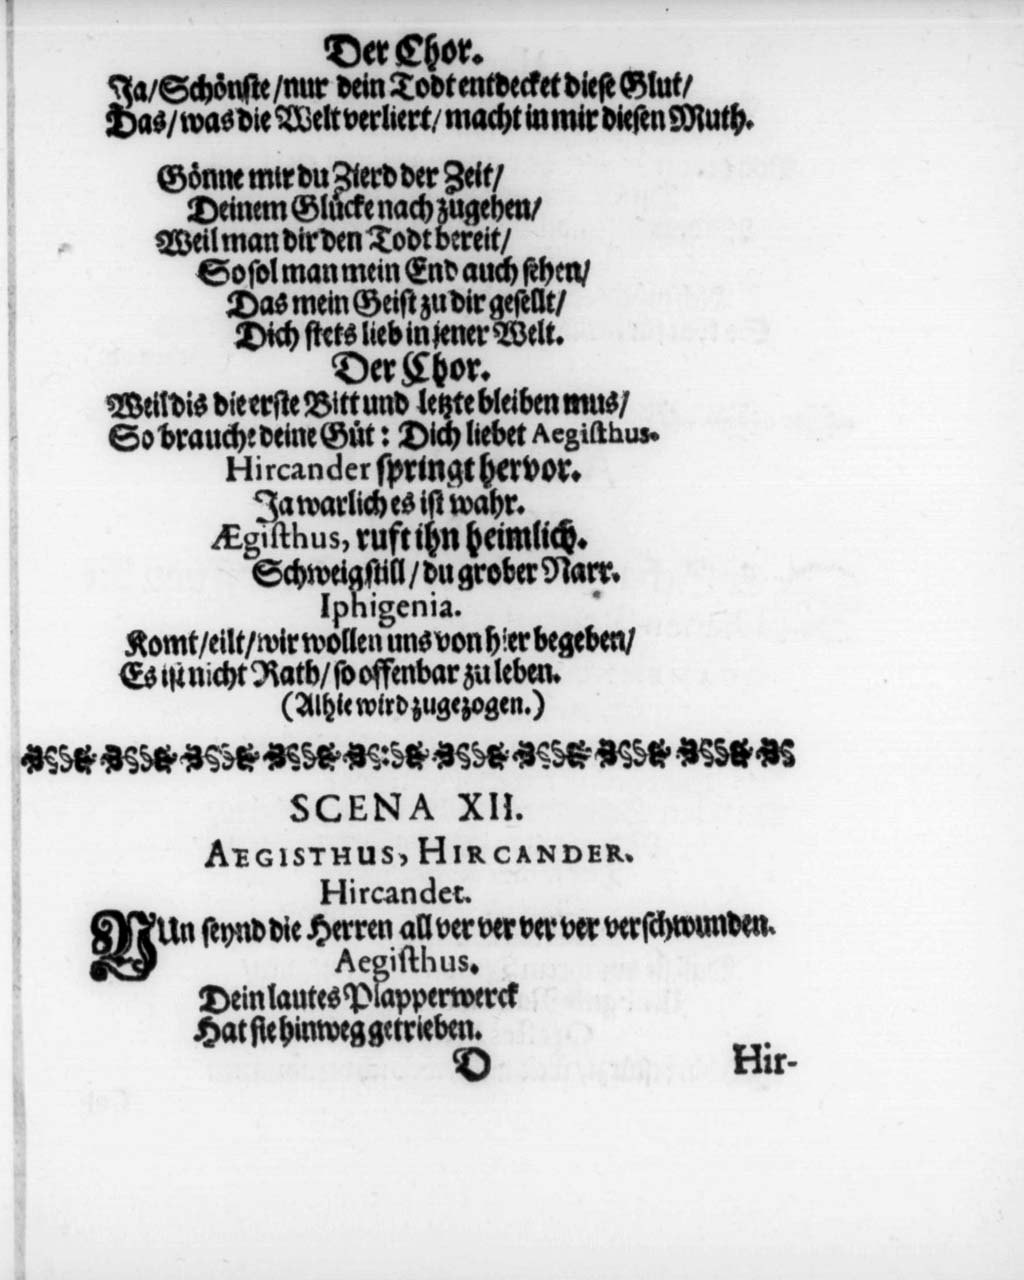 Der Chor.
Ja/Schönste/nur dein Todt entdecket diese Glut/
Das/was die Welt verliert/macht in mir diesen Muth.
Gönne mir du Zierd der Zeit/
Deinem Glücke nach zugehen/
Weil man dir den Todt bereit/
So sol man mein End auch sehen/
Das mein Geist zu dir gesellt/
Dich stets lieb in jener Welt.
Der Chor.
Weil dis die erste Bitt und letzte bleiben mus/
So brauche deine Güt: Dich liebet Aegisthus.
Hircander springt hervor.
Ja warlich es ist wahr.
Ægisthus, ruft ihn heimlich.
Schweig still/du grober Narr.
Iphigenia.
Komt/eilt/wir wollen uns von hier begeben/
Es ist nicht Rath/so offenbar zu leben.
(Alhie wird zugezogen.)
SCENA XII.
AEGISTHUS, HIRCANDER.
Hircander.
NUn seynd die Herren all ver ver ver ver verschwunden.
Aegisthus.
Dein lautes Plapperwerck
Hat sie hinweg getrieben.
D Hir-